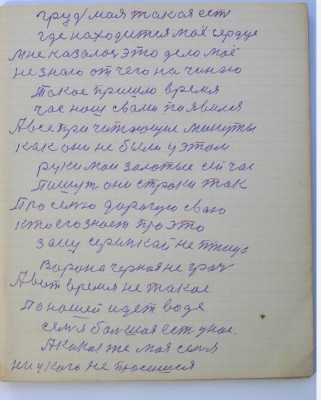 груд/ моя такая ест
где находится моё сердце
мне казалос это дело моё
не знаю от чего начинаю
Такое пришло время
час наш с вами появился
А все при читающие минуты
как они не были у этом
руки мои золотые сей час
Пишут они строки так
Про семю дорогую сваю
кто его знает про это
за шу серяпкай не птицо
Ворона черная не грач
А вот время не такое
По нашей идет воде
семя большая ест у нас
Акакая же моя семя
ни у кого не просишся